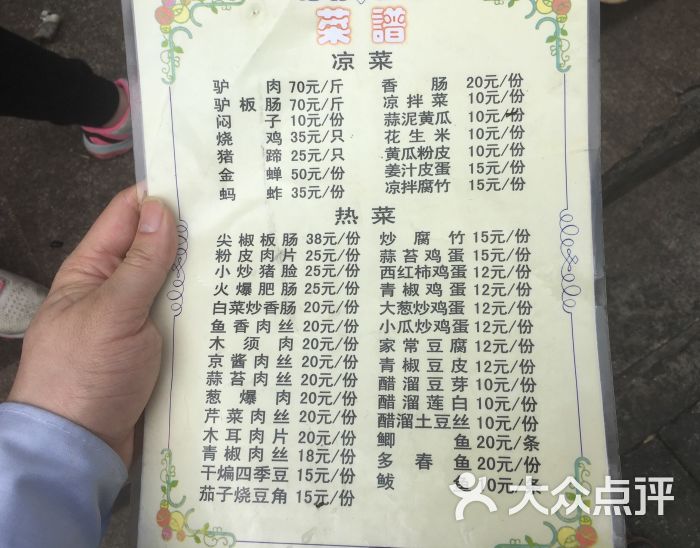 菜譜
凉菜
驴肉 70元/斤
驴板肠 70元/斤
闷子 10元/份
烧鸡 35元/只
猪蹄 25元/只
金蝉 50元/份
蚂蚱 35元/份
香肠 20元/份
凉拌菜 10元/份
蒜泥黄瓜 10元/份
花生米 10元/份
黄瓜粉皮 10元/份
姜汁皮蛋 15元/份
凉拌腐竹 15元/份
热菜
尖椒板肠 38元/份
粉皮肉片 25元/份
小炒猪脸 25元/份
火爆肥肠 25元/份
白菜炒香肠 20元/份
鱼香肉丝 20元/份
木须肉 20元/份
京酱肉丝 20元/份
蒜苔肉丝 20元/份
葱爆肉 20元/份
芹菜肉丝 20元/份
木耳肉片 20元/份
青椒肉丝 18元/份
干煸四季豆 15元/份
茄子烧豆角 15元/份
炒腐竹 15元/份
蒜苔鸡蛋 15元/份
西红柿鸡蛋 12元/份
青椒鸡蛋 12元/份
大葱炒鸡蛋 12元/份
小瓜炒鸡蛋 12元/份
家常豆腐 12元/份
青椒豆皮 12元/份
醋溜豆芽 10元/份
醋溜莲白 10元/份
醋溜土豆丝 10元/份
鲫鱼 20元/条
多春鱼 20元/份
鲅鱼
大众点评